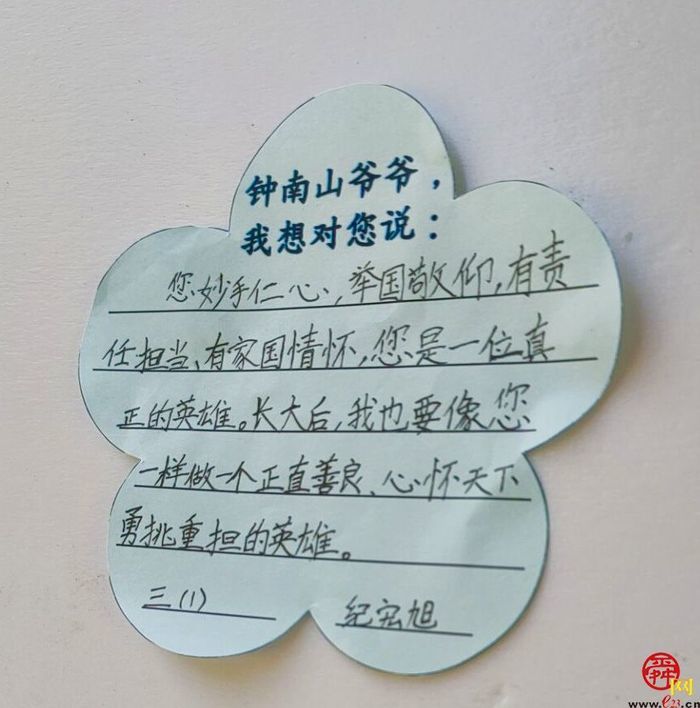 钟南山爷爷，
我想对您说：
您妙手仁心，举国敬仰，有责
任担当、有家国情怀，您是一位真
正的英雄。长大后，我也要像您
一样做一个正直善良、心怀天下
勇挑重担的英雄。
三(1) 纪宏旭
舜网
www.e23.cn